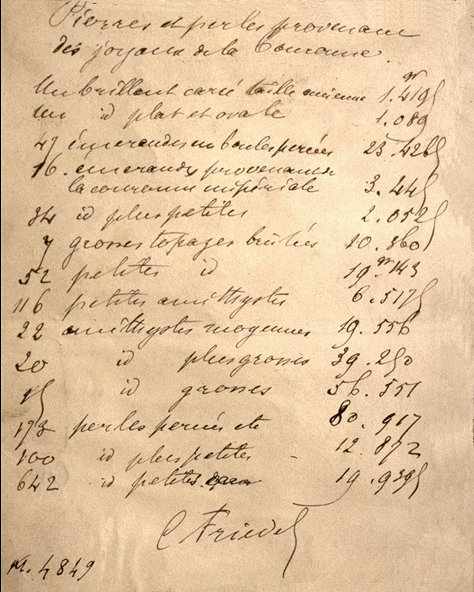 Pierres et perles provenant
des joyaux de la Couronne.
gr
Un brillant carré taille ancienne 1.4195
un id plat et ovale 1.089
47 émeraudes en boules percées 23.426
16. émeraudes provenant de
la couronne impériale 3.445
34 id plus petites 2.052
7 grosses topazes brûlées 10.860
52 petites id 19 gr 143
116 petites améthystes 6.5175
22 améthystes moyennes 19.556
20 id plus grosses 39.250
15 id grosses 56.551
173 perles percées 80.917
100 id plus petites - 12.872
642 id petites 19.9395
C Friedel
M. 4849